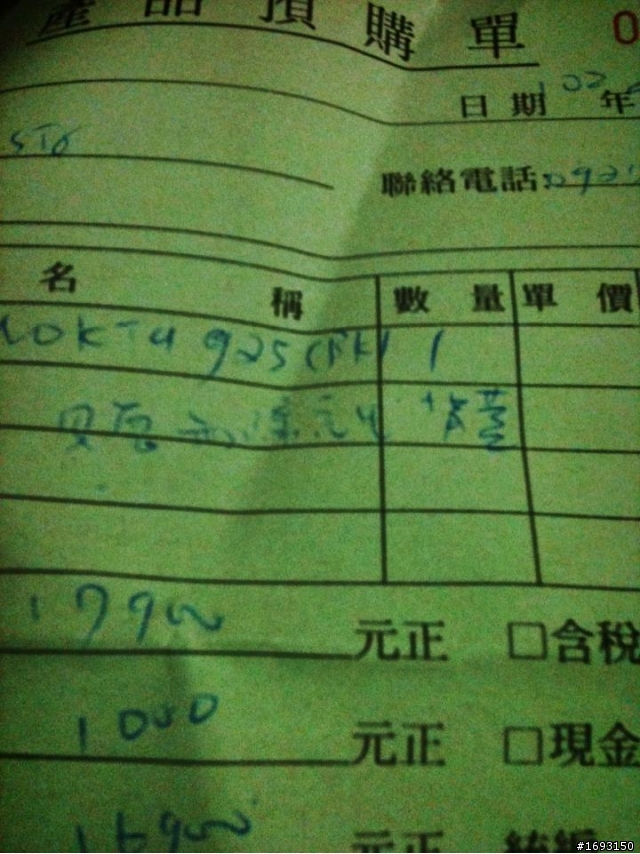 產品預購單 0
日期 102 年
聯絡電話:092
名稱 數量 單價
NOKIA 925 1
背蓋
17900 元正 □含稅
1000 元正 □現金
16900 元正 統編
#1693150